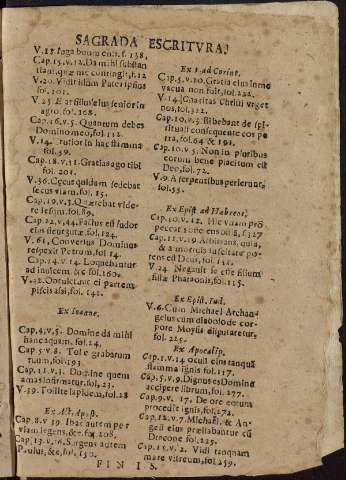 SAGRADA ESCRITVRA.
V.13. Iuga boum emi, f. 138.
Cap.15.v.12. Da mihi substan
tiam quæ me contingit, f.12
V.20. Vidit illum Pater ipsius
fol. 101.
V.25. Erat filius eius senior in
agro fol. 168.
Cap.16.v.5. Quantum debes
Domino meo, fol. 112.
V.24. in hac flamma
fol. 59.
Cap.18.v.11. Gratias ago tibi
fol. 201.
V.36. Cæcus quidam sedebat
secus viam, fol. 15.
Cap.19.v.3. Quærebat vide-
re Iesum, fol. 89.
Cap.22.v.44. Factus est sudor
eius fol. 124.
V.61. Conversus Dominus
respexit Petrum, fol. 14.
Cap.24.v.14. Loquebantur
ad invicem &c fol. 160.
V.42. Obtulerunt ei partem
piscis assi, fol. 142.
Ex Ioanne.
Cap.4.v.5. Domine da mihi
hanc aquam, fol. 24.
Cap.5.v.8. Tolle grabatum
tuum, fol. 193.
Cap.11.v.3. Domine quem
amas infirmatur, fol. 23.
V.39. Tollite lapidem, fol. 28
Ex Act. Apost.
Cap.8.v.39. Ibat autem per
viam gaudens, &c. fol. 208.
Cap.13.v.16. Surgens autem
Paulus, &c. fol. 130.
Ex 1. ad Corint.
Cap.5.v.10. Gratia eius in me
vacua non fuit, fol. 222.
V.14. Charitas Christi urget
nos, fol. 312.
Cap.10.v.3. Bibebant de spi-
rituali consequente eos pe-
tra, fol. 64 & 191.
Cap.10.v.5. Non in pluribus
eorum bene placitum est
Deo, fol. 72.
V.9. A serpentibus perierunt,
fol. 55.
Ex Epist. ad Hebræos.
Cap.10.v.12. Hic vnam pro
peccatis offerens hostiã, f.327
Cap.11.v.19. Arbitrans, quia,
& a mortuis suscitare po-
tens est Deus, fol. 131.
V.24. Negauit se esse filium
filiæ Pharaonis, fol. 115.
Ex Epist. Iud.
V.6. Cum Michael Archan-
gelus cum diabolo de cor-
pore Moysis disputaretur,
fol. 225.
Ex Apocalip.
Cap.1.v.14. oculi eius tanquã
flamma ignis fol. 117.
Cap.5.v.9. Dignus es Domine
accipere librum, fol. 277.
Cap.9.v. 17. De ore eorum
procedit ignis, fol. 172.
Cap.12.v.7. Michael, & An-
geli eius præliabantur cũ
Dracone fol. 225.
Cap.15.v.2. Vidi tanquam
mare vitreum, fol. 259.
FINIS.